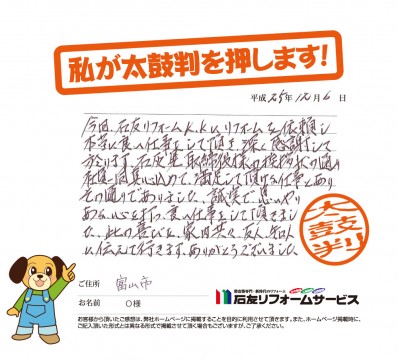 私が太鼓判を押します!
平成 25年 12月 6日
今回、石友リフォームK.K.にリフォームを依頼し
本当に良い仕事をして頂き、深く感謝して
おります。石友 取締役様の挨拶状の通り
社員一同真心込めて、満足して頂ける仕事とあり
その通りでありました。誠実で思いやり
ある、心を打つ、良い仕事をして頂きまし
た。此の喜びを、家内共々、友人、知人
に伝えて行きます。ありがとうございました。
太鼓判
ご住所 富山市
お名前 O様
石友リフォームサービス
お客様から頂いたご感想は、弊社ホームページに掲載することを目的に利用させて頂きます。また、ホームページ掲載時に、
ご記入頂いた形式とは異なる形式で掲載させて頂く場合もございますが、ご了承ください。